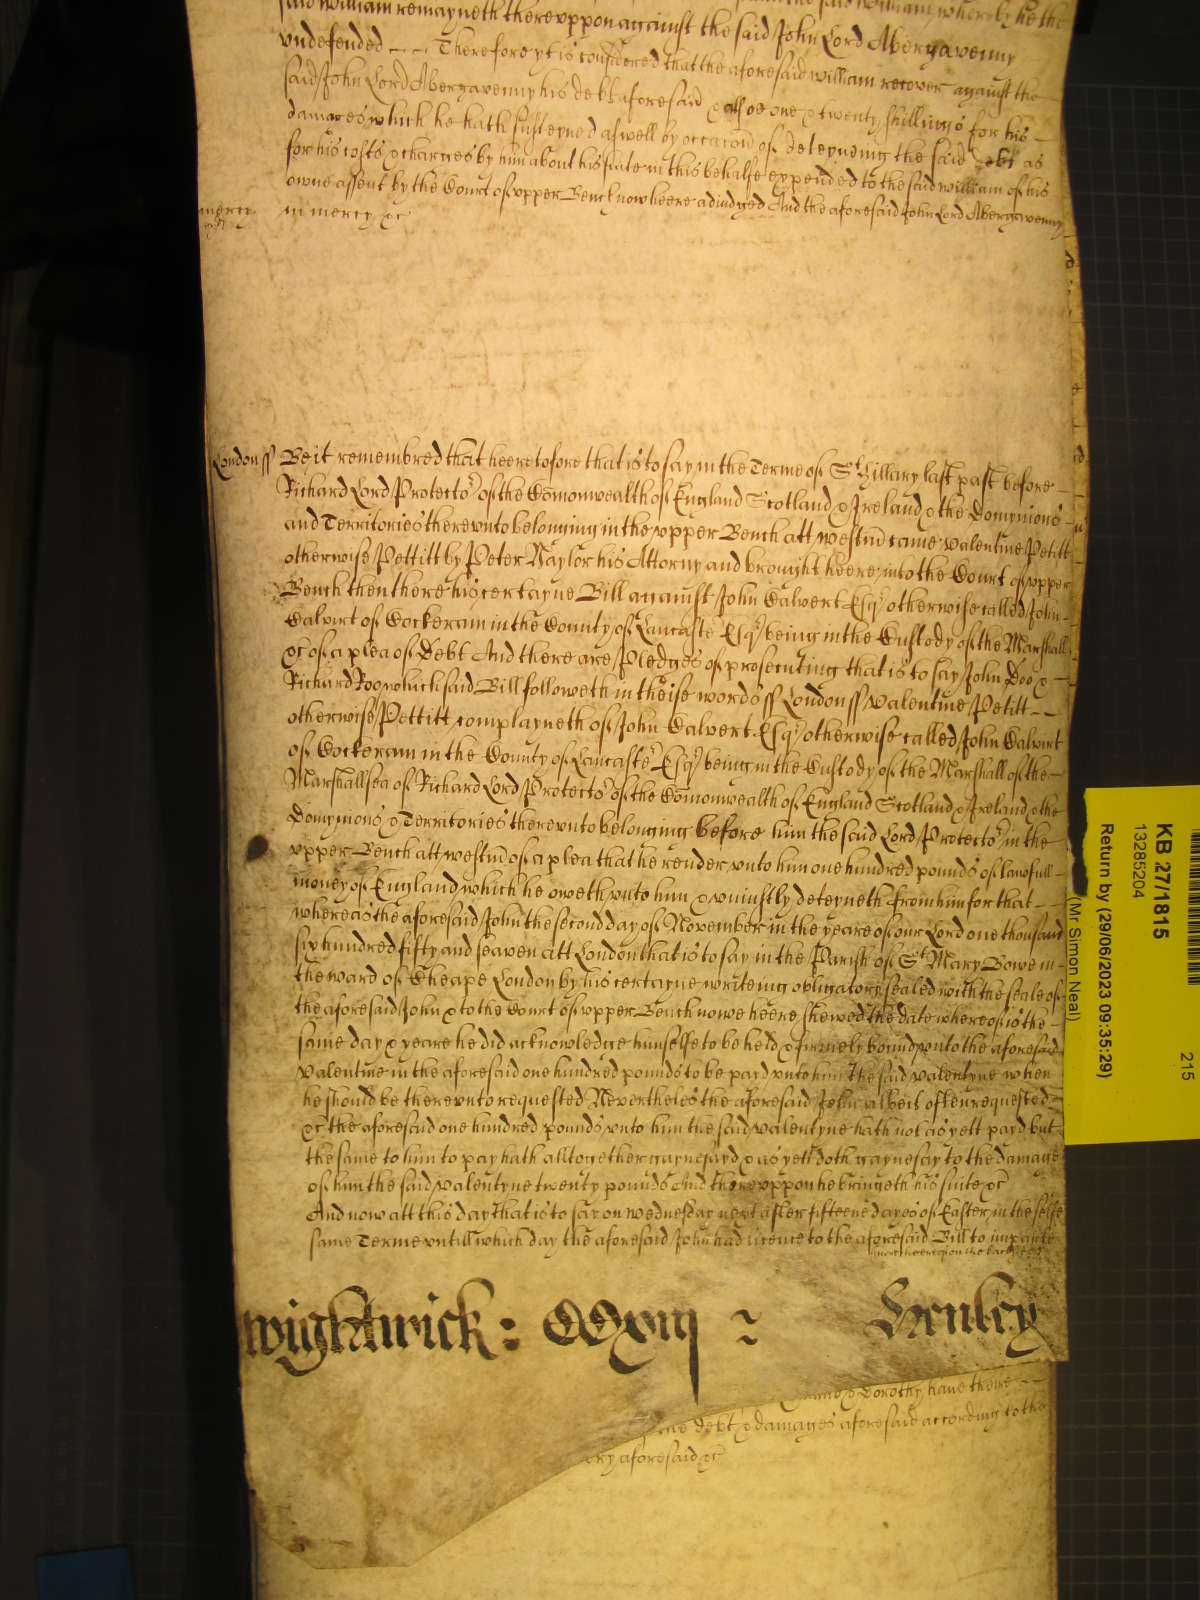 said William remayneth thereuppon against the said John Lord Abergavenny
undefended Therefore yt is considered that the aforesaid William recover against the
said John Lord Abergavenny his debt aforesaid & alsoe one & twenty shillings for his
damages which he hath susteyned aswell by occacon of deteyneing the said debt as
for his costs & charges by him about his suite in this behalfe expended to the said William of his
owne assent by the Court of upper Bench now heere adiudged And the aforesaid John Lord Abergavenny
mercy in mercy &c
London ss Be it remembred that heeretofore that is to say in the Terme of St Hillary last past before
Richard Lord Protector of the Comonwealth of England Scotland & Ireland & the Domynions
and Territories thereunto belonging in the upper Bench att Westm came Valentine Petitt
otherwise Pettitt by Peter Naylor his Attorny and brought heere into the Court of upper
Bench then there his certayne Bill against John Calvert Esqr otherwise called John
Calvert of Cockeram in the County of Lancaster Esqr being in the Custody of the Marshall
&c of a plea of Debt And there are Pledges of prosecuting that is to say John Doo &
Richard Roo which said Bill followeth in theise words ss London ss Valentine Petitt
otherwise Pettitt complayneth of John Calvert Esqr otherwise called John Calvert
of Cockeram in the County of Lancaster Esqr being in the Custody of the Marshall of the
Marshallsea of Richard Lord Protector of the Comonwealth of England Scotland & Ireland & the
Domynions & Territories thereunto belonging before him the said Lord Protector in the
upper Bench att Westm of a plea that he render unto him one hundred pounds of lawfull
money of England which he oweth unto him & uniustly deteyneth from him for that
whereas the aforesaid John the second day of November in the yeare of our Lord one thousand
six hundred fifty and seaven att London that is to say in the Parish of St Mary Bowe in
the ward of Cheape London by his certayne writeing obligatory sealed with the seale of
the aforesaid John & to the Court of upper Bench nowe heere shewed the date whereof is the
same day & yeare he did acknowledge himselfe to be held & firmely bound unto the aforesaid
Valentine in the aforesaid one hundred pounds to be payd unto him the said Valentyne when
he should be thereunto requested Nevertheles the aforesaid John albeit often requested
&c the aforesaid one hundred pounds unto him the said Valentyne hath not as yett payd but
the same to him to pay hath alltogether gaynesayd & as yett doth gaynesay to the damage
of him the said Valentyne twenty pounds And thereuppon he bringeth his suite &c
And now att this day that is to say on Wednesday next after fifteene dayes of Easter in the selfe
same Terme untill which day the aforesaid John had licence to the aforesaid Bill to imparle
more heereof on the backside
Wightwick: CCxiij ~ Henley
& Dorothy have there
debt & damages aforesaid according to the
aforesaid &c
KB 27/1815
13285204
Return by (29/06/2023 09:35:29)
(Mr Simon Neal)
215